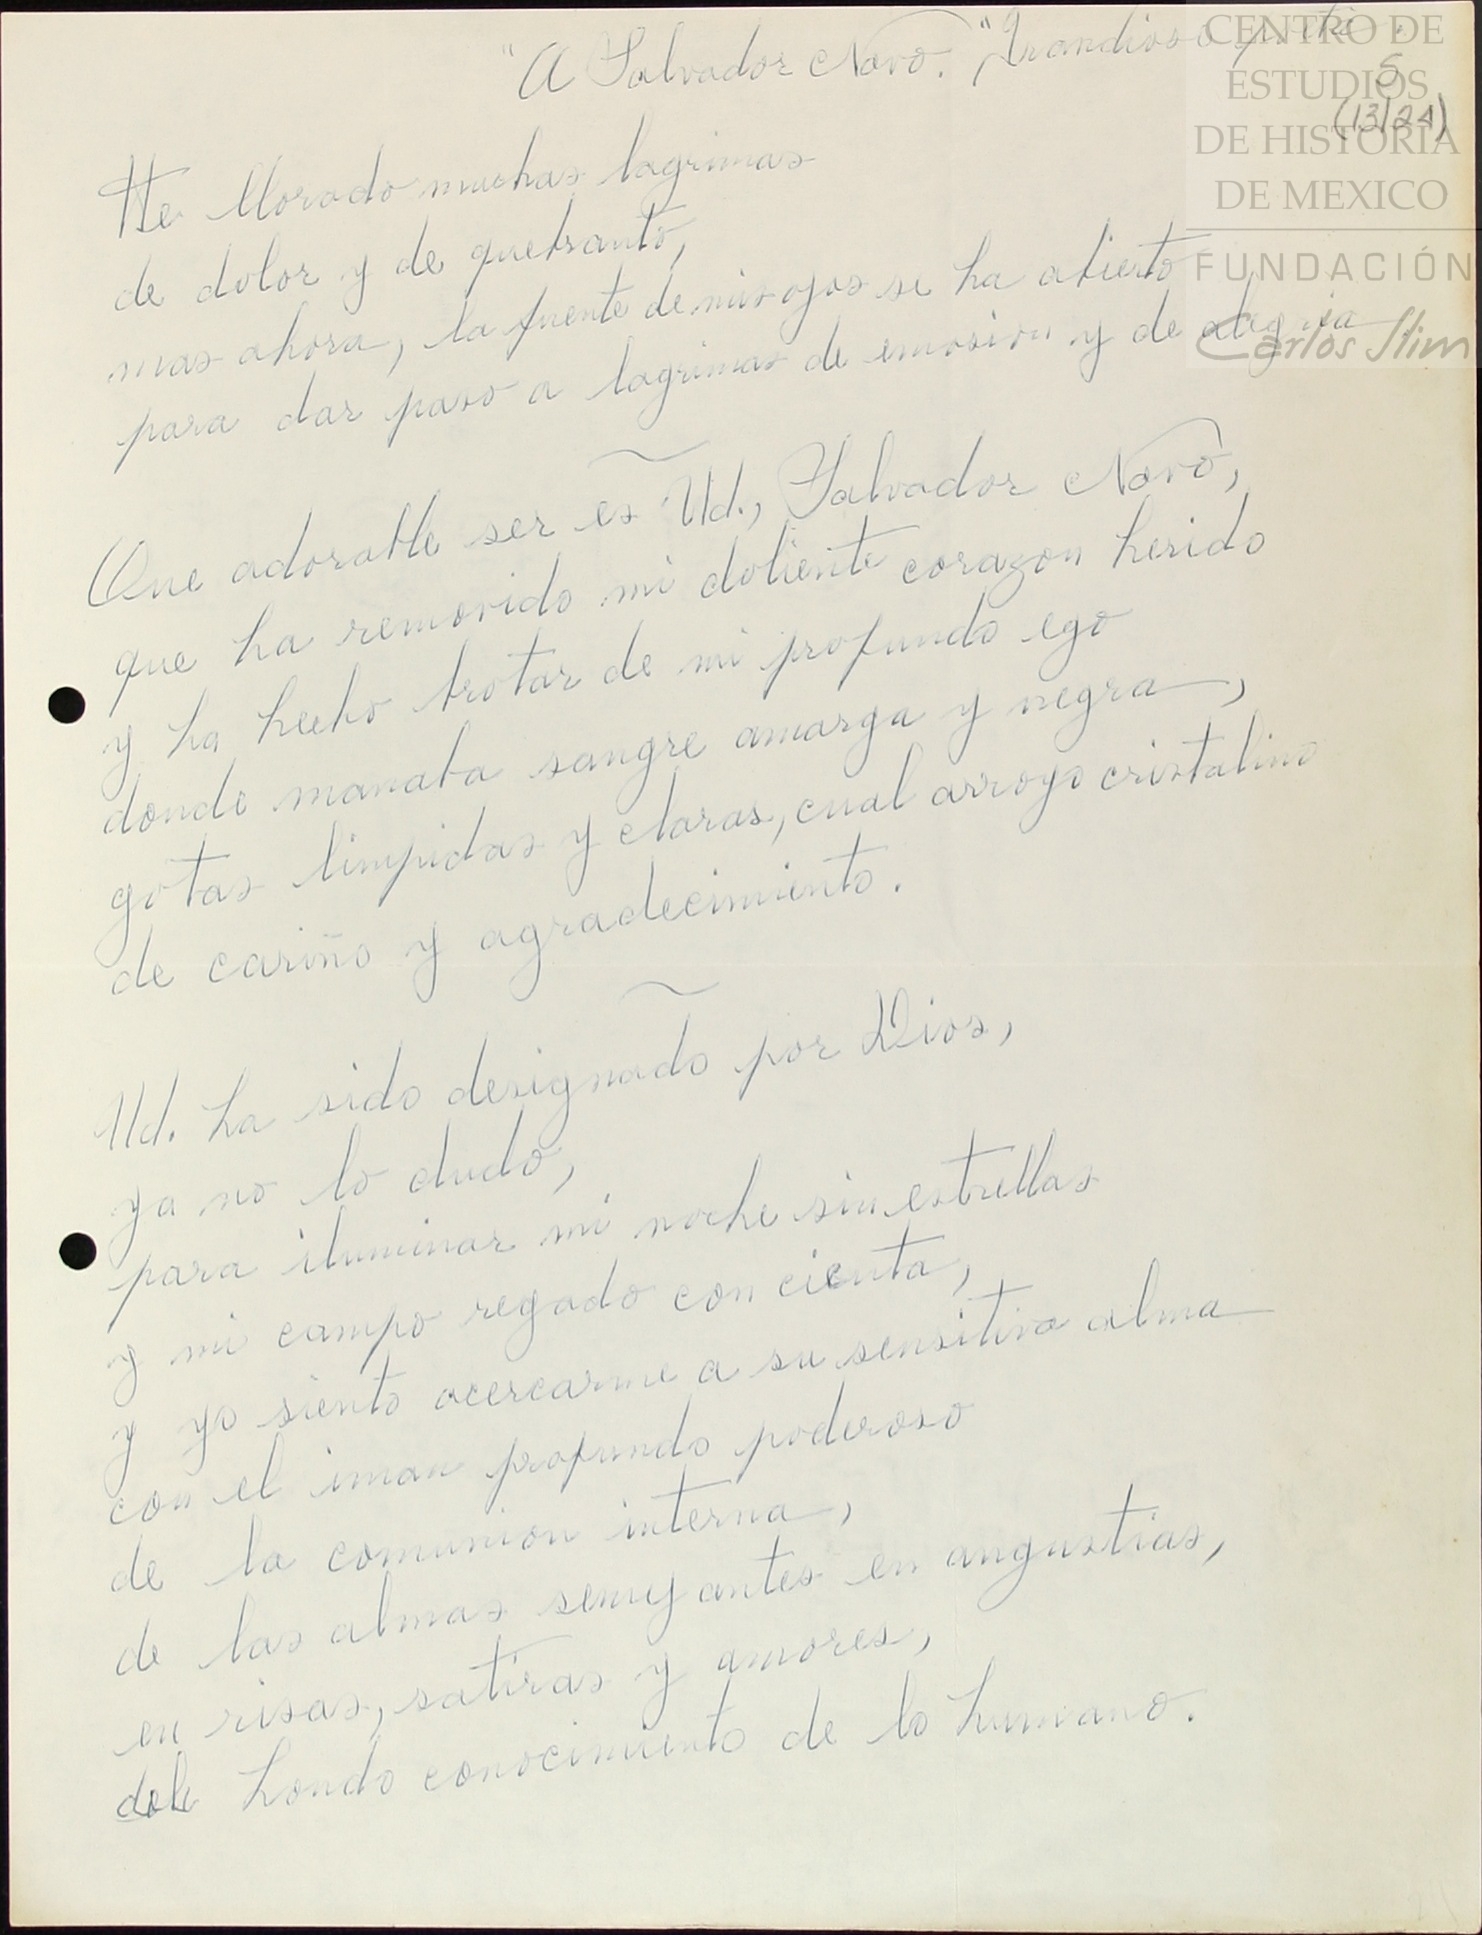 "A Salvador Novo." "Grandioso
5
(13/24)
He llorado muchas lagrimas
de dolor y de quebranto,
mas ahora, la fuente de mis ojos se ha abierto
para dar paso a lagrimas de emosion y de alegria
Que adorable ser es Ud., Salvador Novo,
que ha removido mi doliente corazon herido
y ha hecho brotar de mi profundo ego
donde manaba sangre amarga y negra,
gotas limpidas y claras, cual arroyo cristalino
de cariño y agradecimiento.
Ud. ha sido designado por Dios,
ya no lo dudo,
para iluminar mi noche sin estrellas
y mi campo regado con cicuta,
y yo siento acercarme a su sensitiva alma
con el iman profundo poderoso
de la comunion interna,
de las almas semejantes en angustias,
en risas, satiras y amores,
del hondo conocimiento de lo humano.
CENTRO DE
ESTUDIOS
DE HISTORIA
DE MEXICO
FUNDACIÓN
Carlos Slim